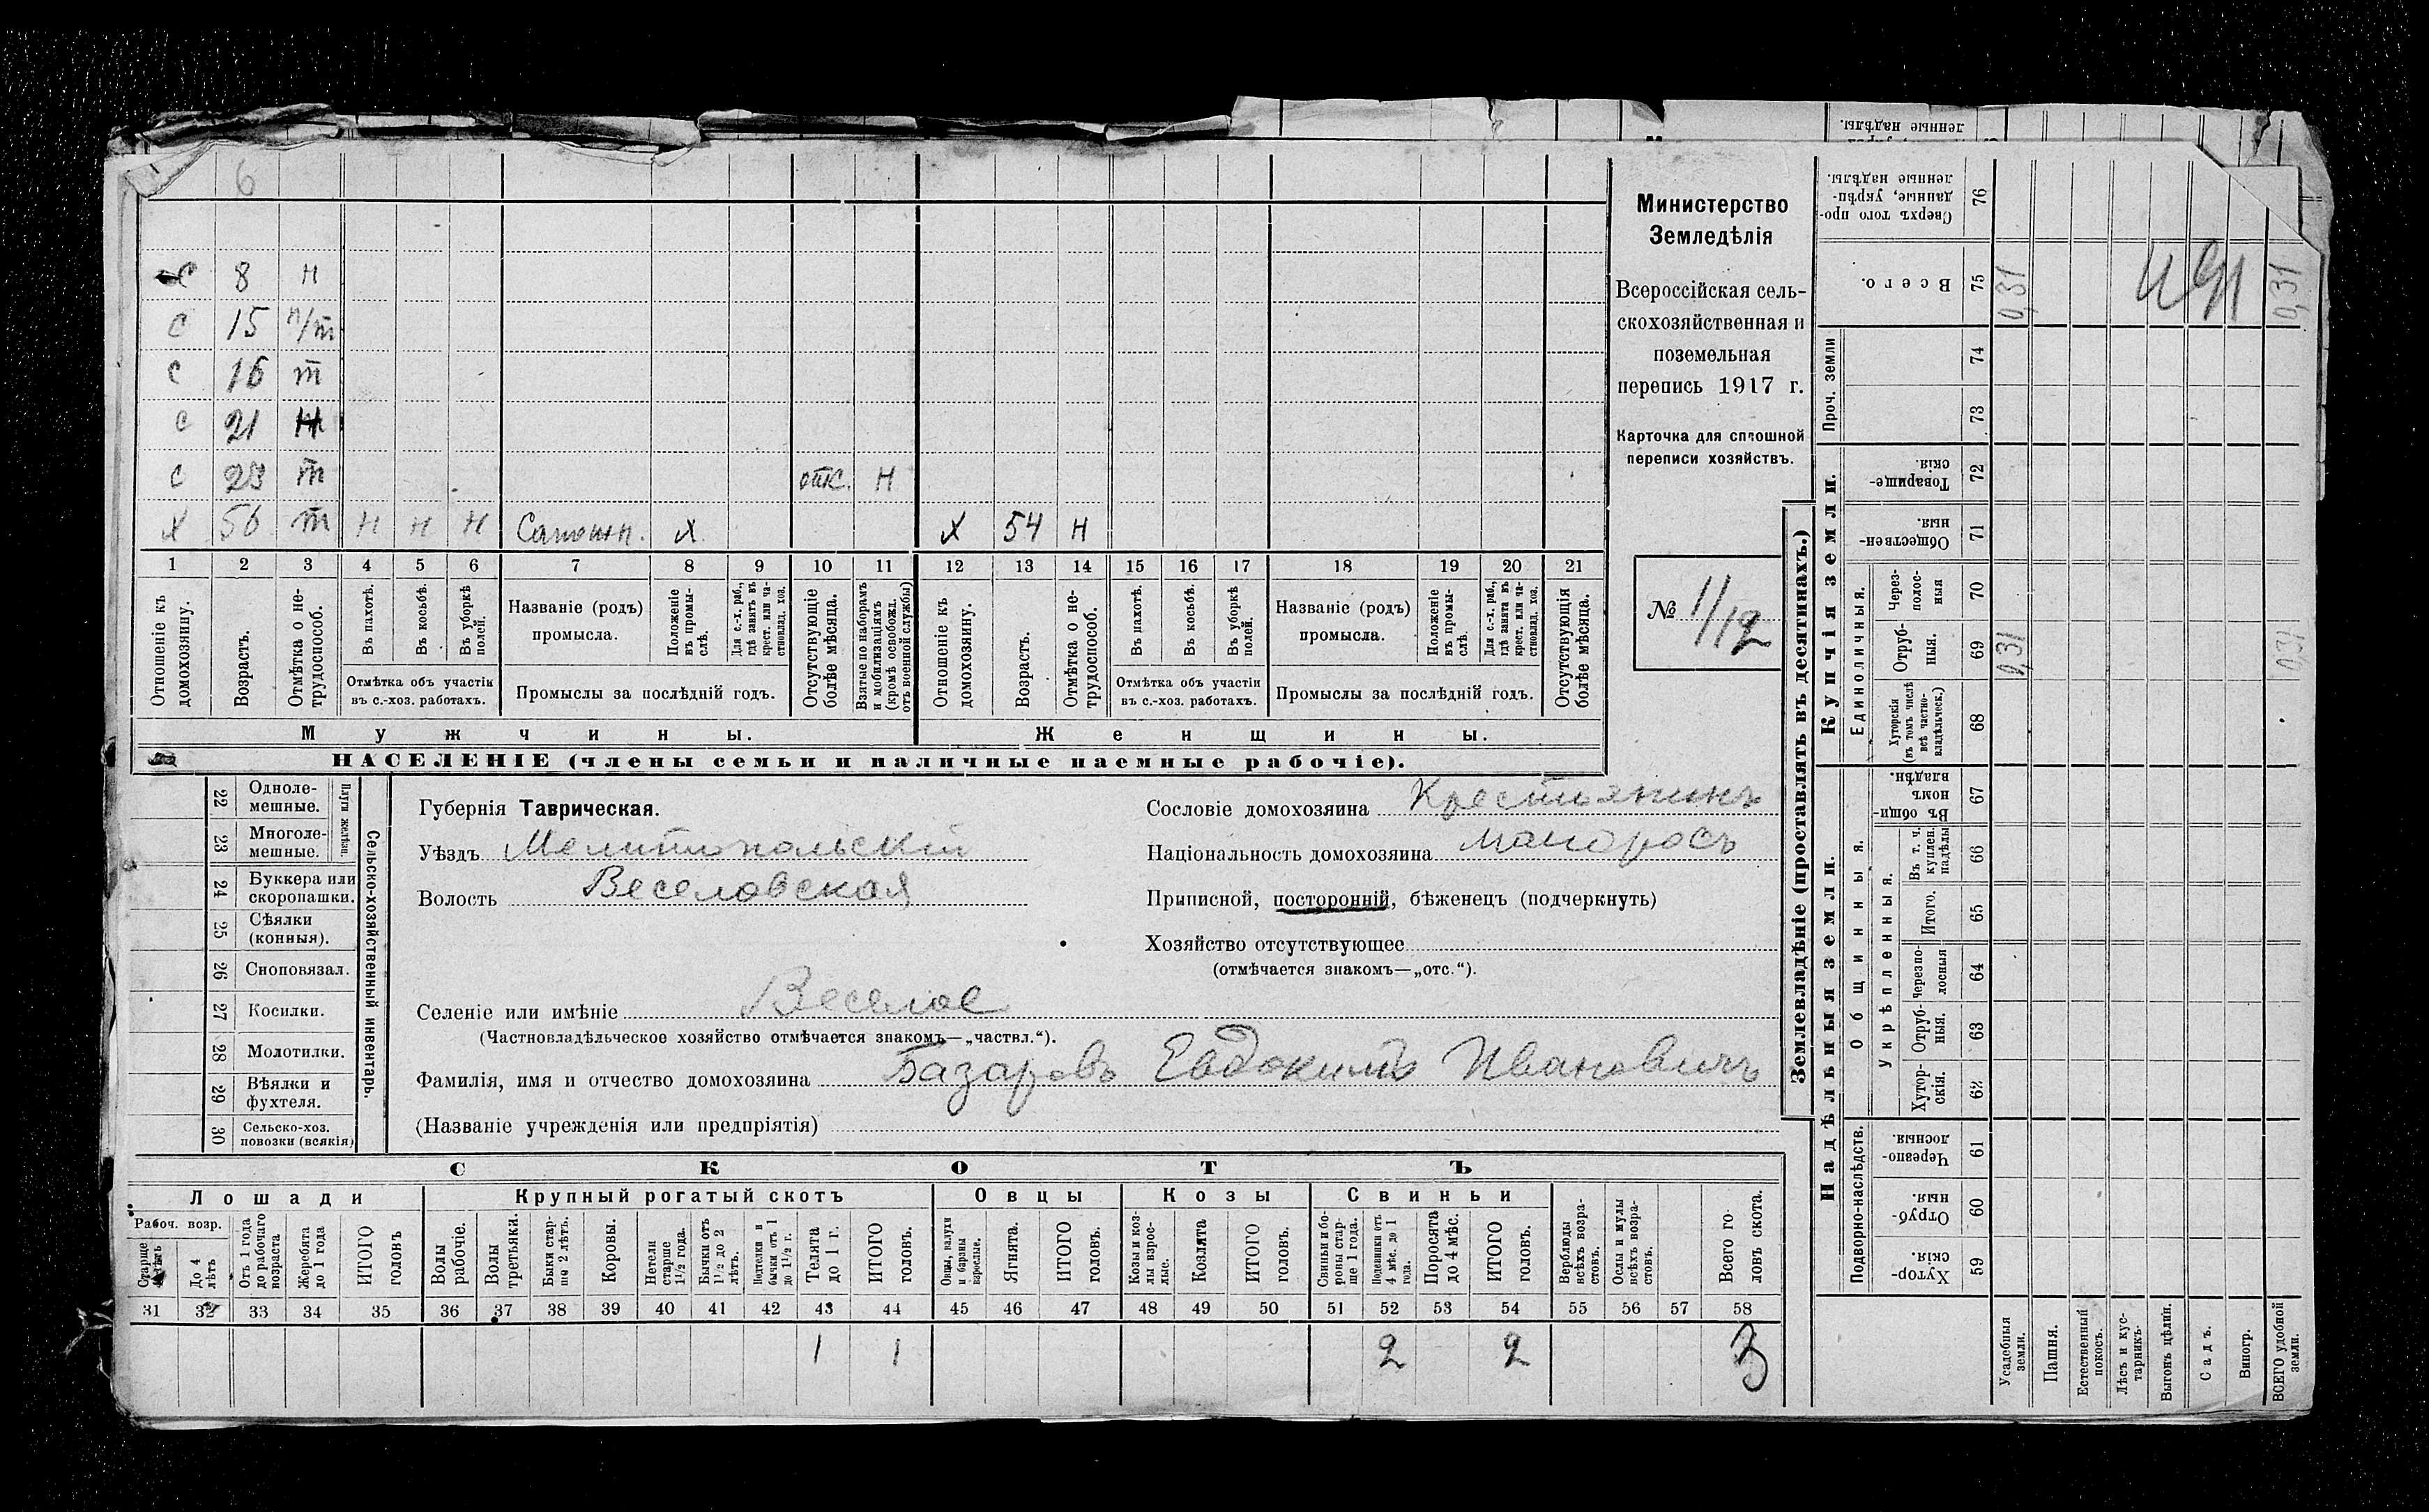 6
С 8 Н
С 15 п/т
С 16 т
С 21 Н
С 23 т отс. Н
Х 56 т Н Н Н Сапожн. х Х 54 Н
1 2 3 4 5 6 7 8 9 10 11 12 13 14 15 16 17 18 19 20 21
Отношеніе къ домохозяину.
Возрастъ.
Отмѣтка о не-трудоспособ.
Въ пахотѣ.
Въ косьбѣ.
Въ уборкѣ полей.
Отмѣтка объ участіи
въ с.-хоз. работахъ.
Названіе (родъ)
промысла.
Положеніе въ промы-слѣ.
Для с.-х. раб., гдѣ занятъ въ крест. или ча-стновлад. хоз.
Промыслы за послѣдній годъ.
Отсутствующіе болѣе мѣсяца.
Взятые по наборамъ и мобилизаціямъ (кромѣ освобожд. отъ военной службы)
Отношеніе къ домохозяину.
Возрастъ.
Отмѣтка о не-трудоспособ.
Въ пахотѣ.
Въ косьбѣ.
Въ уборкѣ полей.
Отмѣтка объ участіи
въ с.-хоз. работахъ.
Названіе (родъ)
промысла.
Положеніе въ промы-слѣ.
Для с.-х. раб., гдѣ занята въ крест. или ча-стновлад. хоз.
Промыслы за послѣдній годъ.
Отсутствующія болѣе мѣсяца.
Мужчины.
Женщины.
НАСЕЛЕНІЕ (члены семьи и наличные наемные рабочіе).
Министерство
Земледѣлія
Всероссійская сель-
скохозяйственная и
поземельная
перепись 1917 г.
Карточка для сплошной
переписи хозяйствъ.
№ 1/12
22 Одноле-мешные.
23 Многоле-мешные.
Плуги желѣзн.
24 Буккера или скоропашки.
25 Сѣялки (конныя).
26 Сноповязал.
27 Косилки.
28 Молотилки.
29 Вѣялки и фухтеля.
30 Сельско-хоз. повозки (всякія)
Сельско-хозяйственный инвентарь.
Губернія Таврическая.
Уѣздъ Мелитопольскій
Волость Веселовская
Селеніе или имѣніе Веселое
(Частновладѣльческое хозяйство отмѣчается знакомъ—„частвл.“).
Сословіе домохозяина Крестьянинъ
Національность домохозяина малоросъ
Приписной, посторонній, бѣженецъ (подчеркнуть)
Хозяйство отсутствующее
(отмѣчается знакомъ—„отс.“).
Фамилія, имя и отчество домохозяина Базаровъ Евдокимъ Ивановичъ
(Названіе учрежденія или предпріятія)
СКОТЪ
Лошади
Крупный рогатый скотъ
Овцы
Козы
Свиньи
Рабоч. возр.
Старше 4 лѣтъ
До 4 лѣтъ
Отъ 1 года до рабочаго возраста
Жеребята до 1 года
ИТОГО головъ
Волы рабочіе.
Волы третьяки.
Быки стар-ше 2 лѣтъ.
Коровы.
Нетели старше 1½ года.
Бычки отъ 1½ до 2 лѣтъ.
Подтелки и бычки отъ 1 до 1½ г.
Телята до 1 г.
ИТОГО головъ.
Овцы, валухи и бараны взрослые.
Ягнята.
ИТОГО головъ.
Козы и коз-лы взрос-лые.
Козлята
ИТОГО головъ.
Свиньи и бо-ровы стар-ше 1 года.
Подсвинки отъ 4 мѣс. до 1 года.
Поросята до 4 мѣс.
ИТОГО головъ.
Верблюды всѣхъ возра-стовъ.
Ослы и мулы всѣхъ возра-стовъ.
Всего го-ловъ скота.
31 32 33 34 35 36 37 38 39 40 41 42 43 44 45 46 47 48 49 50 51 52 53 54 55 56 57 58
1 1 2 2 3
Землевладѣніе (проставлять въ десятинахъ.)
ленные надѣлы.
Сверхъ того про-данные, укрѣп-ленные надѣлы. 76
Всего. 75 0,31 0,31
Проч. земли
74
73
Купчія земли.
Товарище-скія. 72
Обществен-ныя. 71
Единоличныя.
Через-полос-ныя 70
Отруб-ныя. 69 0,31 0,31
Хуторскія (въ томъ числѣ всѣ частно-владѣльческ.) 68
Надѣльныя земли.
Общинныя.
Въ общин-номъ владѣн. 67
Укрѣпленныя.
Въ т. ч. куплен. надѣлы 66
Итого. 65
Черезпо-лосныя 64
Отруб-ныя. 63
Хутор-скія. 62
Подворно-наслѣдств.
Черезпо-лосныя. 61
Отруб-ныя. 60
Хутор-скія. 59
Усадебныя земли.
Пашня.
Естественный покосъ.
Лѣсъ и кус-тарникъ.
Выгонъ цѣлин.
Садъ.
Виногр.
ВСЕГО удобной земли.